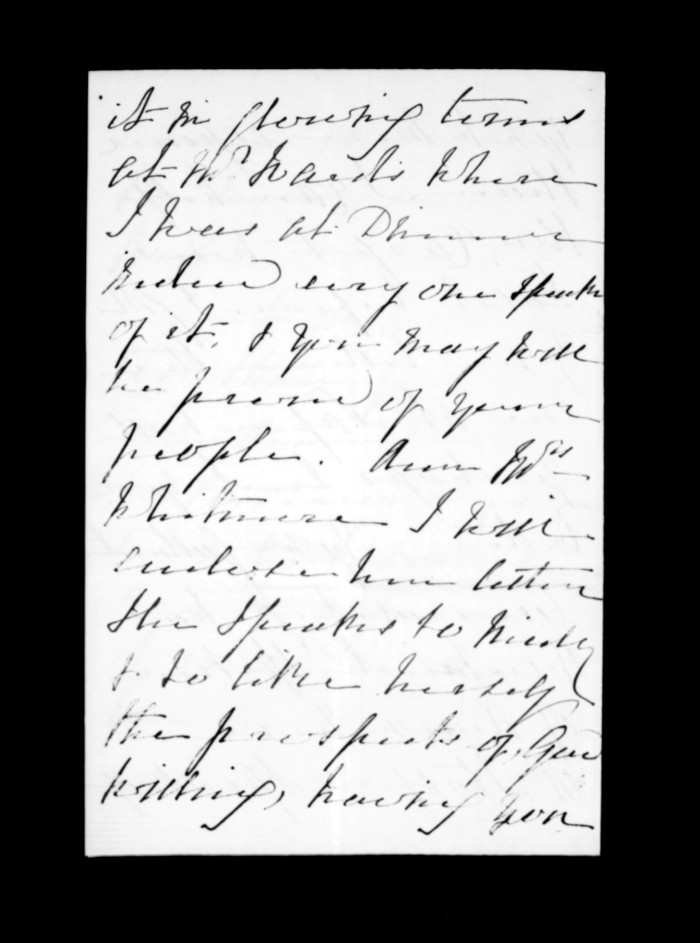 it in glowing terms
at Mrs where
I was at Dinner
indeed every one speaks
of it, & you may well
be proud of your
people. Dear Mrs
Whitmore I will
enclose her letter
She speaks so kindly
& so like herself
the prospects of, God
willing, having you